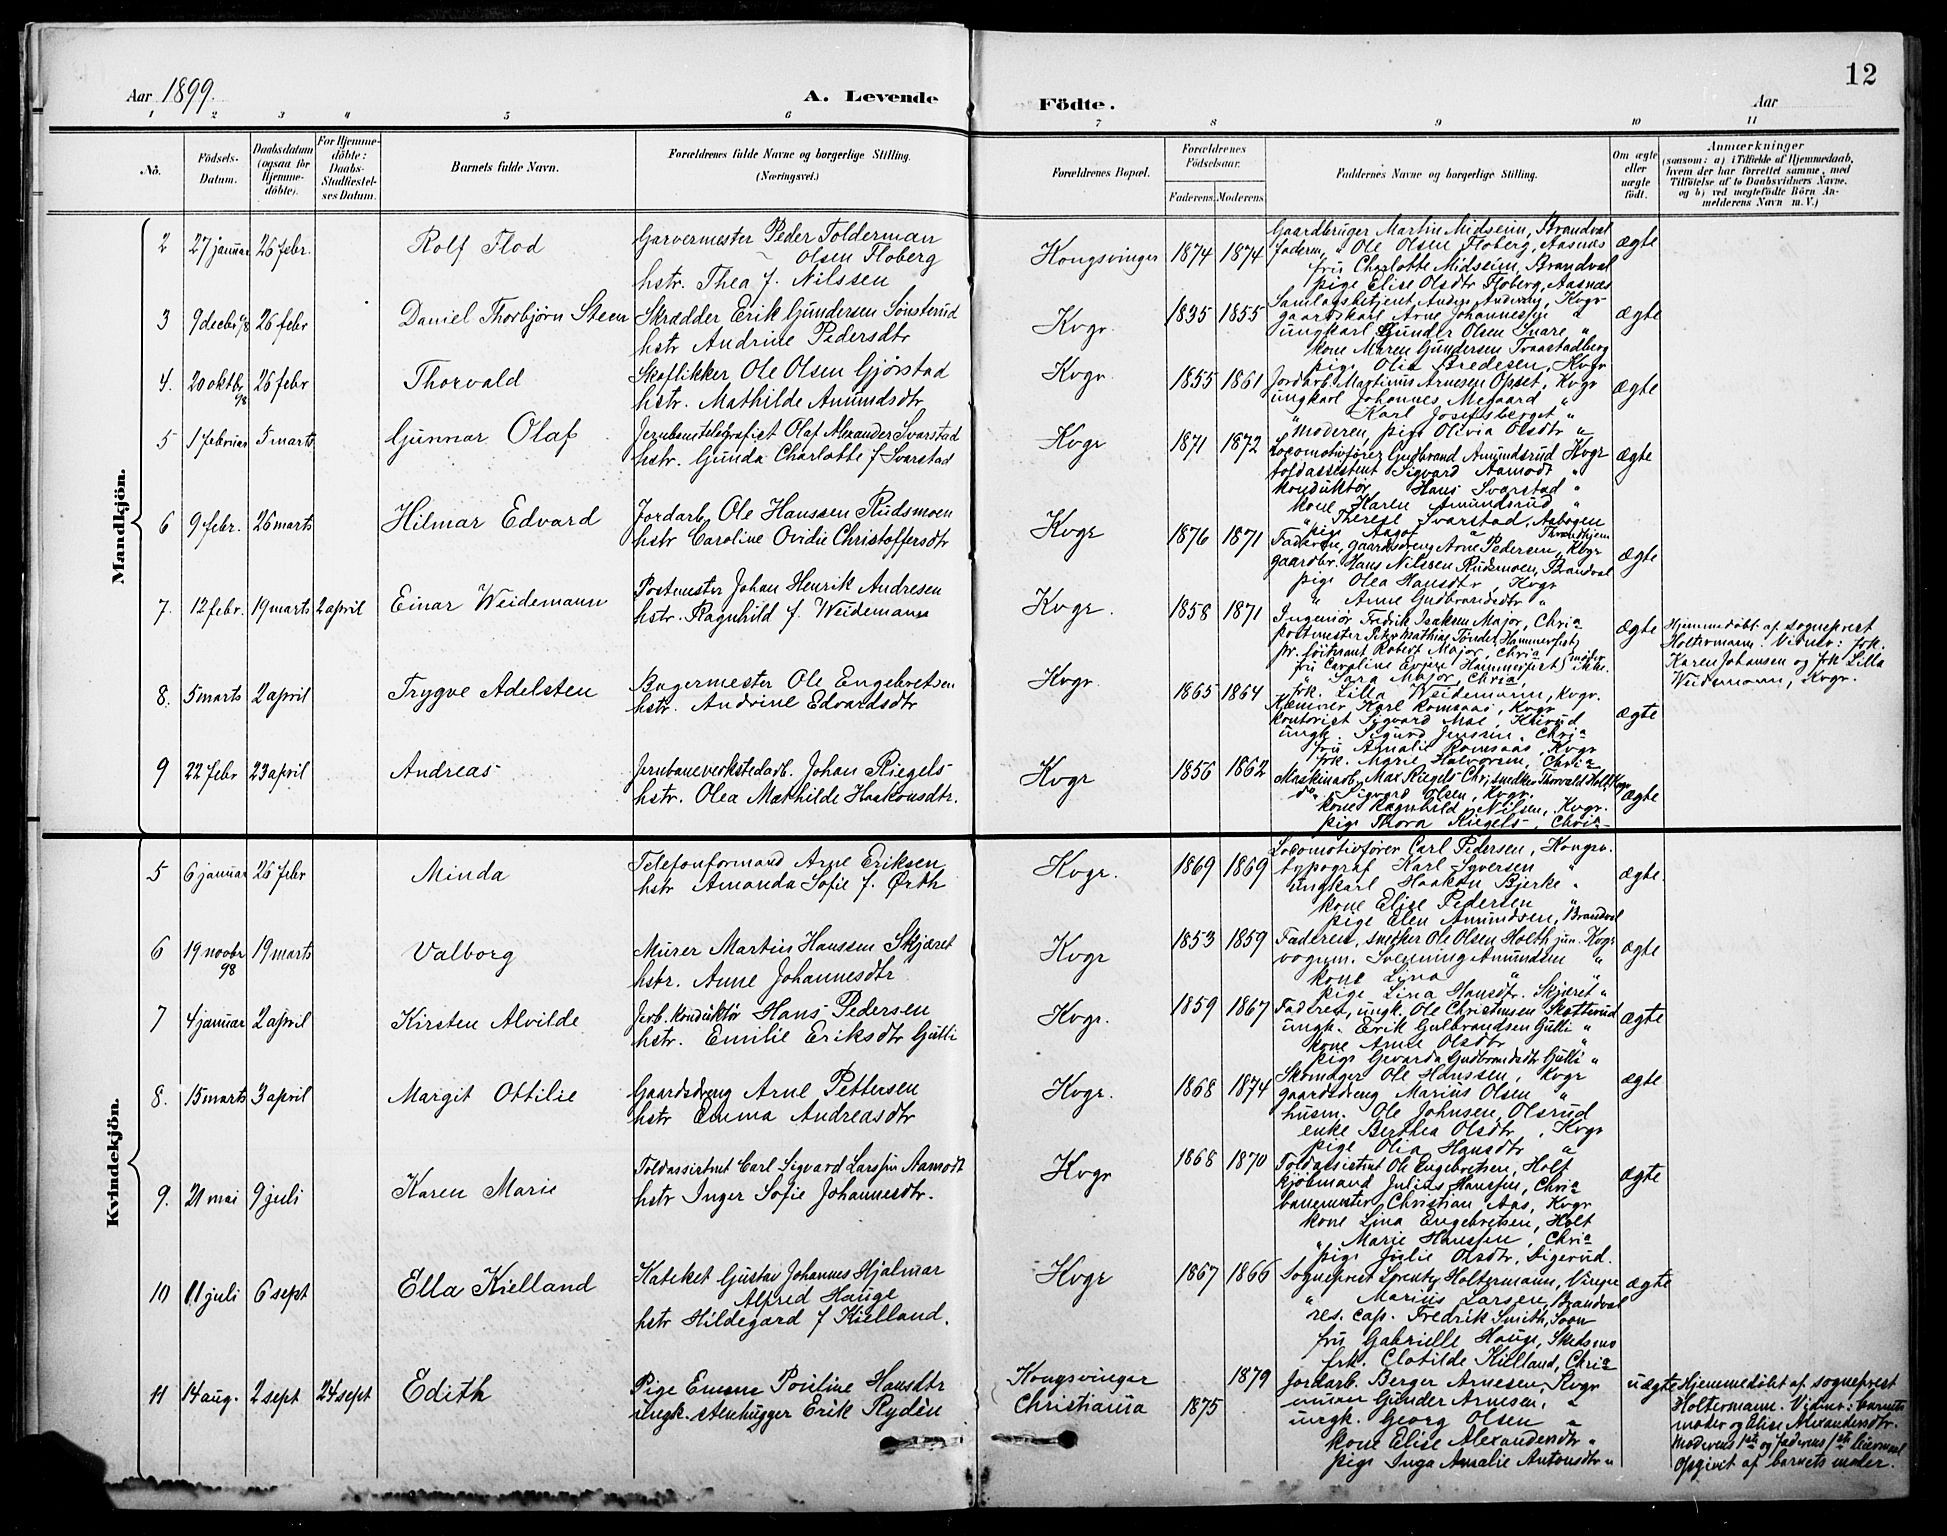 12
Aar 1899.
A. Levende Födte.
Aar
1 2 3 4 5 6 7 8 9 10 11
No.
Födsels-Datum.
Daabsdatum (ogsaa for Hjemmedöbte).
For Hjemmedöbte: Daabs-Stadfæstelses Datum.
Barnets fulde Navn.
Forældrenes fulde Navne og borgerlige Stilling. (Næringsvei.)
Forældrenes Bopæl.
Forældrenes Födselsaar.
Faderens. Moderens.
Faddernes Navne og borgerlige Stilling.
Om ægte eller uægte födt.
Anmærkninger
(saasom: a) i Tilfælde af Hjemmedaab, hvem der har forrettet samme, med Tilföielse af to Daabsvidners Navne, og b) ved uægtefödte Börn Anmelderens Navn m. V.)
Mandkjön.
2 27 januar 26 febr. Rolf Flod
Garvermester Peder Tolderman
Olsen Floberg
hstr. Thea f. Nilssen
Kongsvinger 1874 1874
Gaardbruger Martin Midseim, Brandval
Faderen, " Ole Olsen Floberg, Aasnæs
fru Charlotte Midseim, Brandval
pige Elise Olsdtr Floberg, Aasnæs
ægte
3 9 decbr 98 26 febr Daniel Thorbjørn Steen
Skrædder Erik Gundersen Sønsterud
hstr Andrine Pedersdtr
Kvgr. 1835 1855
gaardskarl Arne Johannessen "
ungkarl Gunder Olsen Snare "
kone Maren Gundersen Traastadberg
pige Olia Bredesen, Kvgr
ægte
4. 20 oktbr 98 26 febr Thorvald
Skoflikker Ole Olsen Gjørstad
hstr. Mathilde Amundsdtr
Kvgr. 1855 1861
Jordarb. Martinus Arnesen Opset, Kvgr
ungkarl Johannes Megaard "
" Karl Josefsberget "
Moderen, pige Olivia Olsdtr "
ægte
5 1 februar 5 marts Gunnar Olaf
Jernbanetelegrafist Olaf Alexander Svarstad
hstr. Gunda Charlotte f Svarstad
Kvgr 1871 1872
Locomotivfører Gudbrand Amundsrud Kvgr
toldassistent Sigvard Aamodt "
konduktør Hans Svarstad "
kone Karen Amundsrud "
" Therese Svarstad, Aabogen
pige Aagot " Throndhjem
ægte
6 9 febr. 26 marts Hilmar Edvard
Jordarb. Ole Hanssen Rudsmoen
hstr Caroline Ovidie Christoffersdtr
Kvgr 1876 1871
Faderen, gaardsdreng Arne Pedersen, Kvgr
gaardbr. Hans Nilssen Rudsmoen, Brandval
pige Olea Hansdtr Kvgr
" Anne Gudbrandsdtr "
ægte
7. 12 febr. 19 marts 2 april Einar Weidemann
Postmester Johan Henrik Andresen
hstr. Ragnhild f. Weidemann
Kvgr. 1858 1871
Ingeniør Fredrik Isaksen Major, Chria
postmester Peter Mathias Tønder, Hammerfest
pr. løitnant Robert Major, Chria
fru Caroline Evjen Hammerfest
" Sara Major, Chria,
frk. Lilla Weidemann, Kvgr.
ægte
Hjemmedøbt af sogneprest
Holtermann. Vidner: frk.
Karen Johansen og frk Lilla
Weidemann, Kvgr.
8. 5 marts 2 april Trygve Adelsten
Bagermester Ole Engebretsen
hstr. Andrine Edvardsdtr
Kvgr. 1865 1864
Kæmner Karl Romsaas, Kvgr
kontorist Sigvard Moe,
ungk. Sigurd Jensen, Chria
fru Amalie Romsaas, Kvgr
frk. Marie Halvorsen, Chria
ægte
9 22 febr 23 april Andreas
Jernbaneverkstedarb. Johan Riegels
hstr. Olea Mathilde Haakonsdtr.
Kvgr 1856 1862
Maskinarb. Max Riegels Chr, snedker Thorvald Holt, Kvgr
do. Sigvard Olsen, Kvgr.
kone Ragnhild Nilsen, Kvgr.
pige Thora Riegels, Chria
ægte
Kvindekjön.
5 6 januar 26 febr Minda
Telefonformand Arne Eriksen
hstr Amanda Sofie f. Örth
Kvgr. 1869 1869
Locomotivfører Carl Pedersen, Kongsv.
typograf Karl Syversen "
ungkarl Haakon Bjerke "
kone Elise Pedersen "
pige Elen Amundsen, Brandval
ægte.
6 19 novbr 98 19 marts Valborg
Murer Martin Hanssen Skjæret
hstr. Anne Johannesdtr
Kvgr 1853 1859
Faderen, snedker Ole Olsen Holth jun. Kvgr
vognm. Svenning Amundsen "
kone Lina " "
pige Lina Hansdtr. Skjæret "
ægte
7 4 januar 2 april Kirsten Alvilde
Jerb. konduktør Hans Pedersen
hstr. Emilie Eriksdtr Gulli
Kvgr. 1859 1867
Faderen, ungk. Ole Christensen Skotterud
ungk. Erik Gulbrandsen Gulli "
kone Anne Olsdtr "
pige Gevarda Gudbrandsdtr Gulli "
ægte
8. 15 marts 3 april Margit Ottilie
Gaardsdreng Arne Pettersen
hstr Emma Andreasdtr
Kvgr. 1868 1874
Skomager Ole Hanssen, Kvgr
gaardsdreng Marius Olsen "
husm. Ole Johnsen, Olsrud
enke Berthea Olsdtr, Kvgr
pige Olia Hansdtr "
ægte
9. 21 mai 9 juli Karen Marie
Toldassistent Carl Sigvard Larssen Aamodt
hstr Inger Sofie Johannesdtr.
Kvgr 1868 1870
Toldassistent Ole Engebretsen, Holt
kjøbmand Julius Hanssen, Chria
banemester Christian Aas, Kvgr
kone Lina Engebretsen, Holt
" Marie Hanssen, Chria
pige Julie Olsdtr, Digerud.
ægte
10 11 juli 6 sept Ella Kielland
Kateket Gustav Johannes Hjalmar
Alfred Hauge
hstr Hildegard f Kielland.
Kvgr 1867 1866
Sogneprest Sprenty Holtermann, Vinger
" Marius Larsen, Brandval
res. cap. Fredrik Smith, Soon
fru Gabrielle Hauge, Skedsmo
frk. Clotilde Kielland, Chria
ægte
11 14 aug. 2 sept 24 sept Edith
Pige Emma Pouline Hansdtr
ungk. stenhugger Erik Rydén
Kongsvinger
Christiania
1879
1875
Jordarb. Berger Arnesen, Kvgr
Gunder Arnesen, "
ungk. Georg Olsen "
kone Elise Alexandersdtr "
pige Inga Amalie Antonsdtr "
uægte
Hjemmedøbt af sogneprest
Holtermann. Vidner: barnets
moder og Elise Alexandersdtr.
Moderens 1ste og faderens 1ste leiermaal
Opgivet af barnets moder.